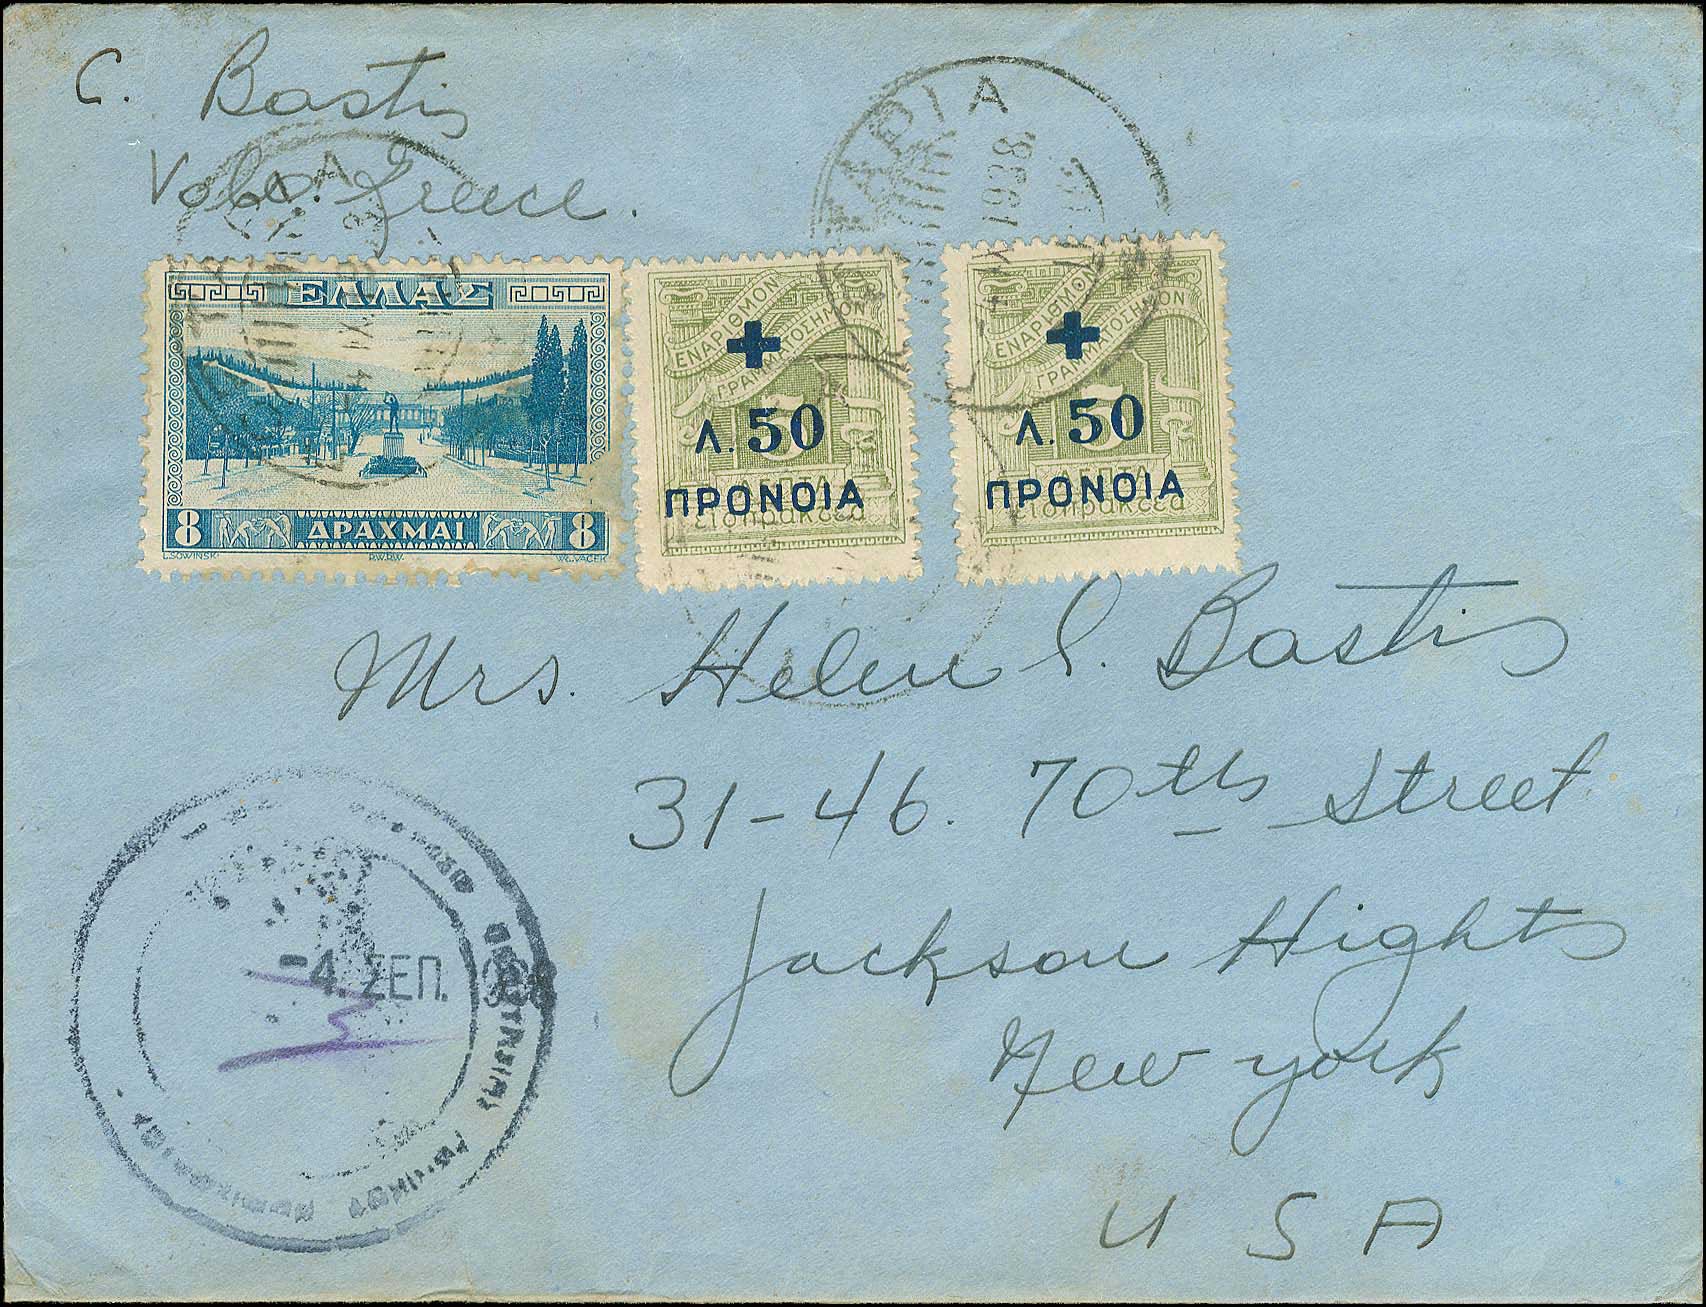 C. Bastis
Volo. Greece.
ΑΡΙΑ
1938
ΕΛΛΑΣ
8 ΔΡΑΧΜΑΙ 8
L.SOWINSKI
R.W.R.W.
W.VACEK
ΕΝΑΡΙΘΜΟΝ
ΓΡΑΜΜΑΤΟΣΗΜΟΝ
5
Λ. 50
ΛΕΠΤΑ
ΠΡΟΝΟΙΑ
είσπρακτέα
ΕΝΑΡΙΘΜΟΝ
ΓΡΑΜΜΑΤΟΣΗΜΟΝ
5
Λ. 50
ΛΕΠΤΑ
ΠΡΟΝΟΙΑ
είσπρακτέα
Mrs. Helen P. Bastis
31-46. 70th Street
Jackson Hights
New york
U S A
-4. ΣΕΠ. 938